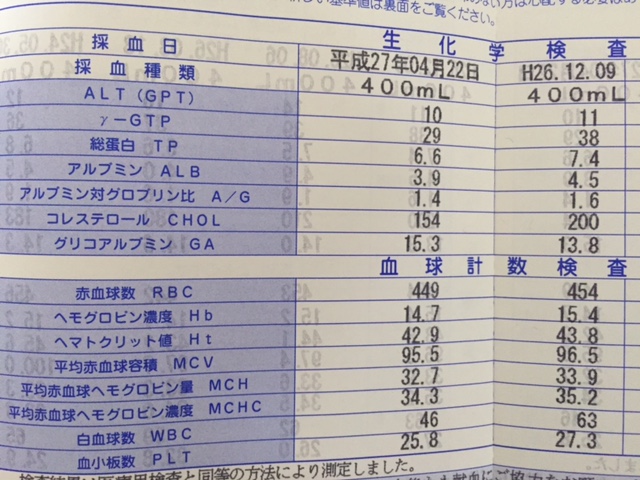 しい基準値は裏面をご覧ください。
生化学検査
採血日 平成27年04月22日 H26.12.09
採血種類 400mL 400mL
ALT(GPT) 10 11
γ-GTP 29 38
総蛋白 TP 6.6 7.4
アルブミン ALB 3.9 4.5
アルブミン対グロブリン比 A/G 1.4 1.6
コレステロール CHOL 154 200
グリコアルブミン GA 15.3 13.8
血球計数検査
赤血球数 RBC 449 454
ヘモグロビン濃度 Hb 14.7 15.4
ヘマトクリット値 Ht 42.9 43.8
平均赤血球容積 MCV 95.5 96.5
平均赤血球ヘモグロビン量 MCH 32.7 33.9
平均赤血球ヘモグロビン濃度 MCHC 34.3 35.2
白血球数 WBC 46 63
血小板数 PLT 25.8 27.3
検査結果は医療用検査と同等の方法により測定しました。